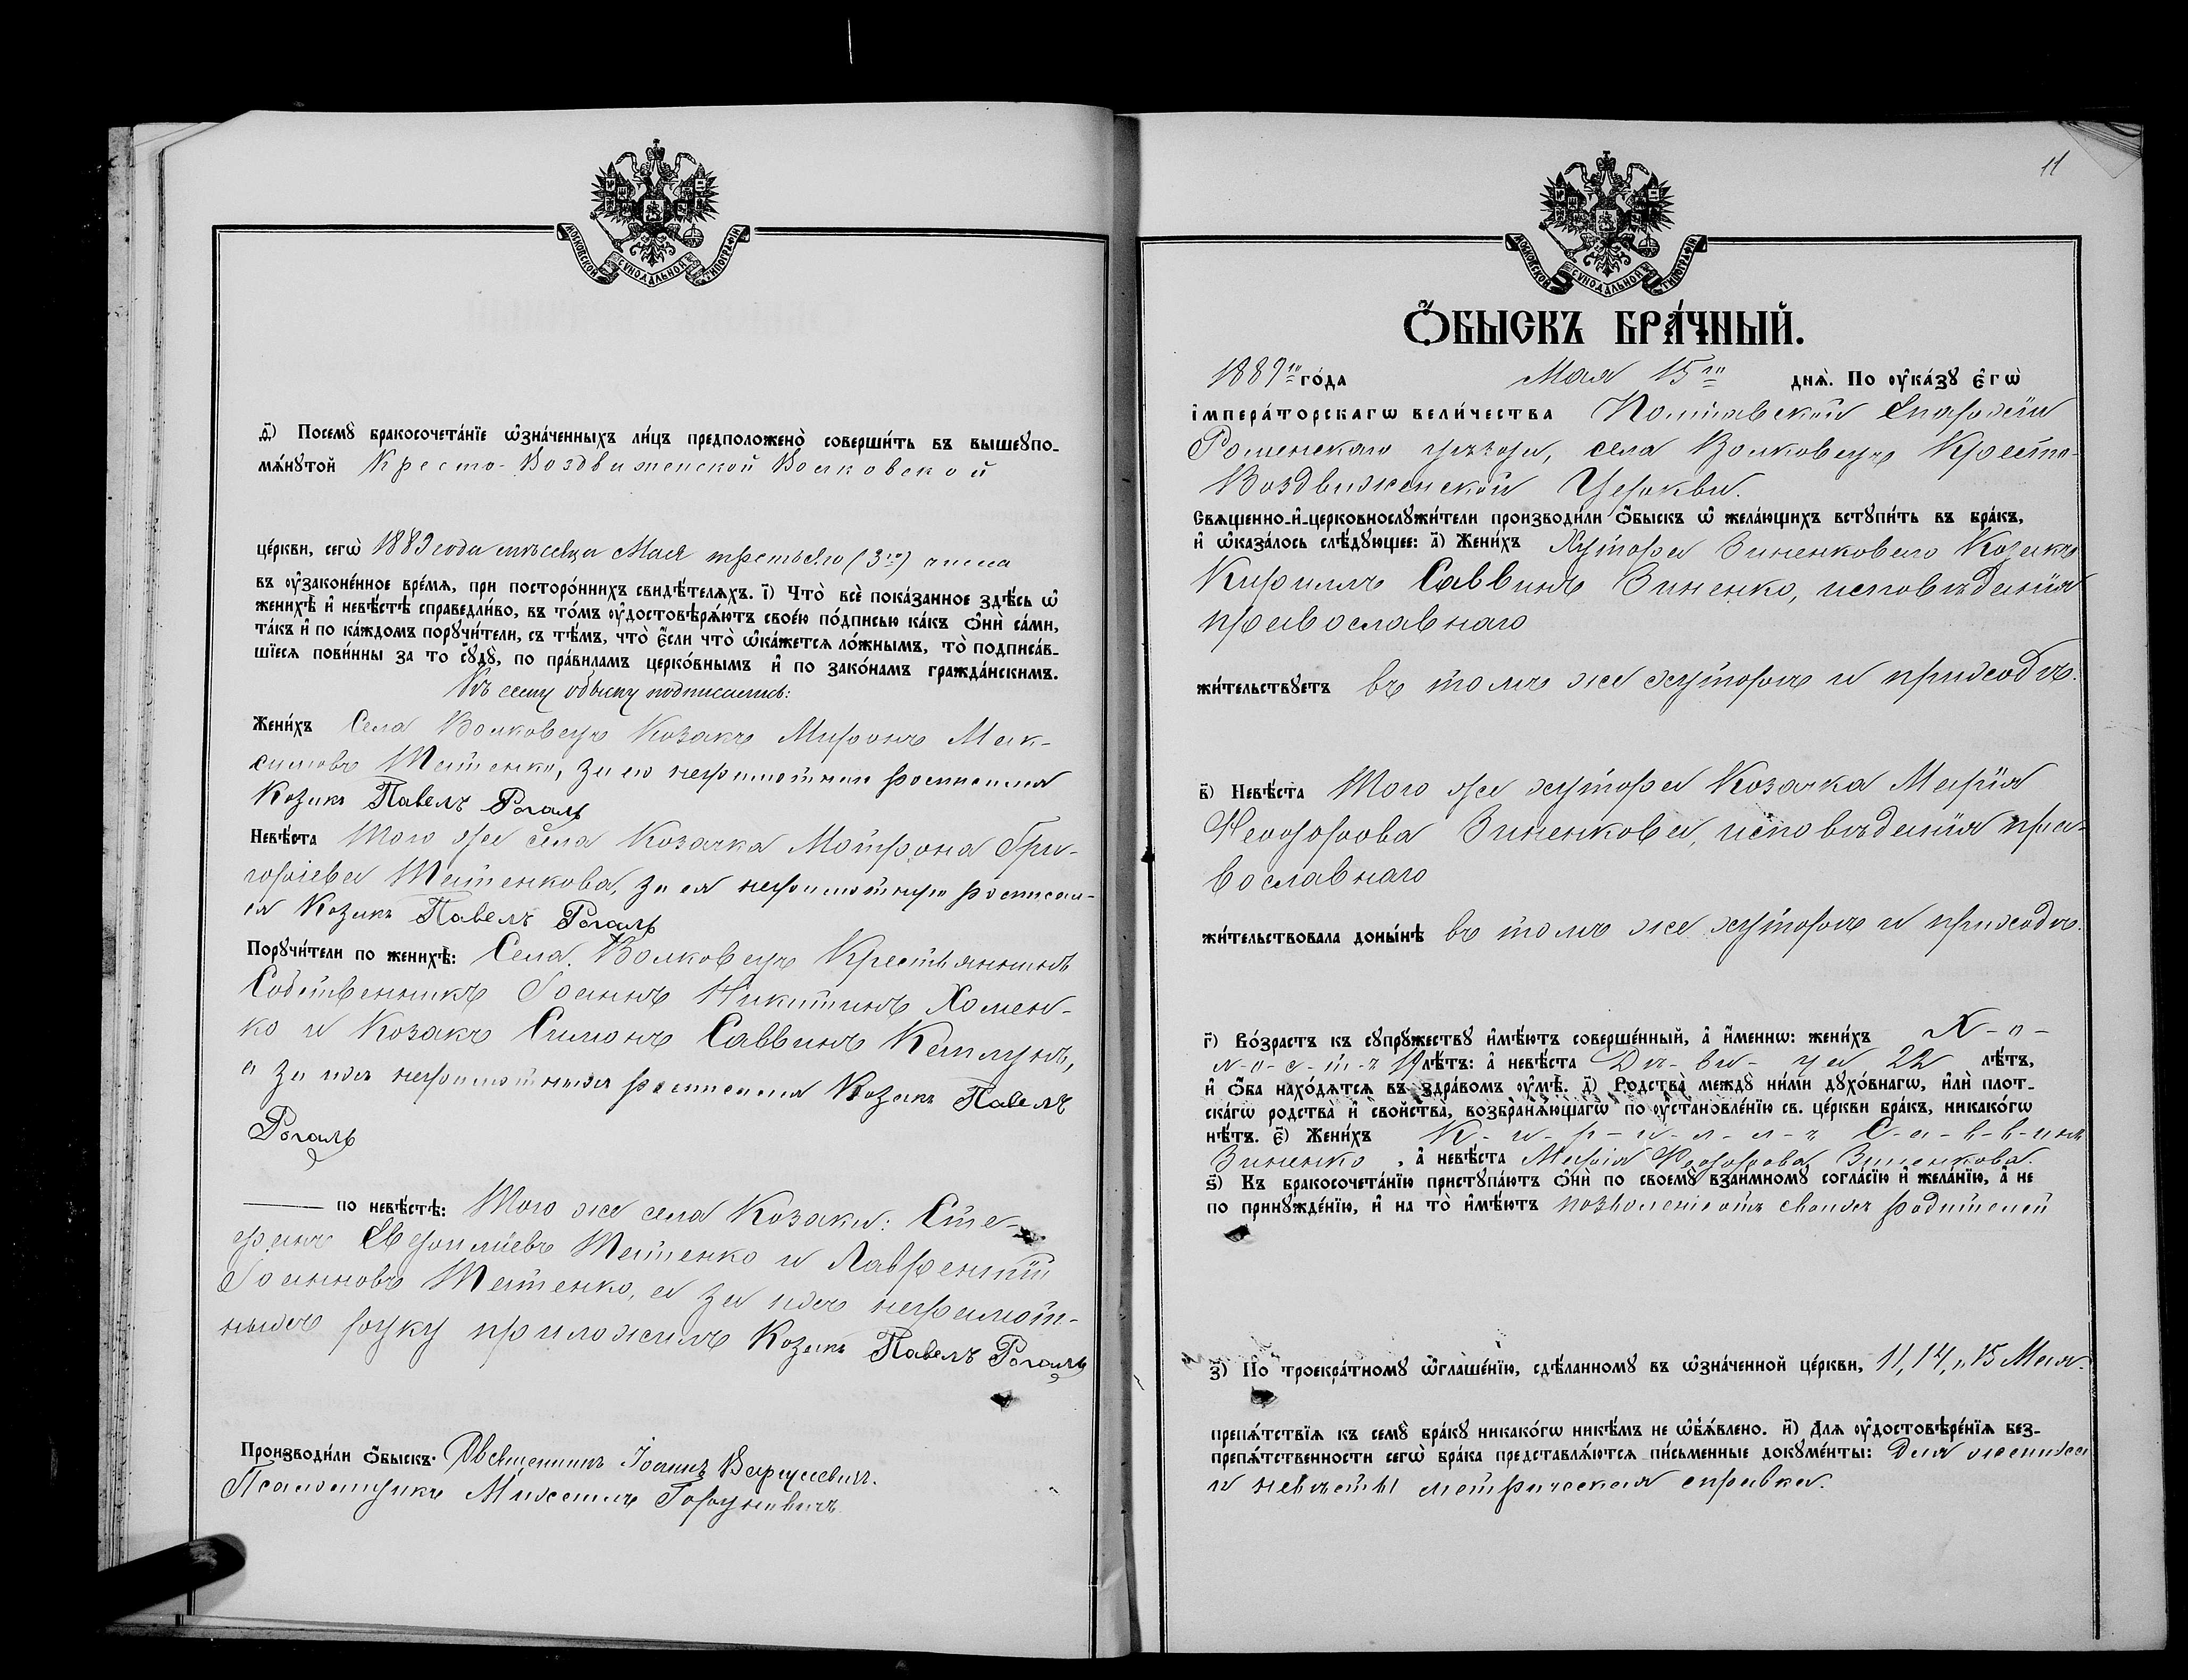 МОСКОВСКОЙ СѴНОДАЛЬНОЙ ТИПОГРАФІИ
ѳ҃) Посемꙋ̀ бракосочета́нїе ѡ҆зна́ченныхъ ли́цъ предположено̀ соверши́ть въ вышеꙋпо-
мѧ́нꙋтой Кресто-Воздвиженской Волковской
це́ркви, сегѡ̀ 1889 года мѣсяца Мая третьяго (3го) числа
въ ᲂу҆законе́нное вре́мѧ, при посторо́ннихъ свидѣ́телѧхъ. і҃) Что̀ всѐ пока́занное здѣ́сь ѡ҆
женихѣ̀ и҆ невѣ́стѣ справедли́во, въ то́мъ ᲂу҆достовѣрѧ́ютъ свое́ю по́дписью ка́къ ѻ҆нѝ са́ми,
та́къ и҆ по ка́ждомъ порꙋчи́тели, съ тѣ́мъ, что̀ є҆́сли что̀ ѡ҆ка́жетсѧ ло́жнымъ, то̀ подписа́в-
шїесѧ пови́нны за то сꙋдꙋ̀, по пра́виламъ церко́внымъ и҆ по зако́намъ гражда́нскимъ.
Къ сему обыску подписались:
Жени́хъ Села Волковецъ Козакъ Миронъ Мак-
симовъ Татенко, за его неграмотнаго росписался
Козакъ Павелъ Рогаль
Невѣ́ста Того же села Козачка Мотрона Гри-
горіева Татенкова, за ея неграмотную росписал-
ся Козакъ Павелъ Рогаль
Порꙋчи́тели по женихѣ̀: Села Волковецъ Крестьянинъ
Собственникъ Іоаннъ Никитинъ Хомен-
ко и Козакъ Симонъ Саввинъ
а за ихъ неграмотныхъ росписался Козакъ Павелъ
Рогаль
по невѣ́стѣ: Того же села Козаки: Сте-
фанъ Татенко и Лаврентій
Іоанновъ Татенко, а за ихъ неграмот-
ныхъ руку приложилъ Козакъ Павелъ Рогаль
Производи́ли ѻ҆́быскъ: Священникъ Іоаннъ
Псаломщикъ Михаилъ
11
МОСКОВСКОЙ СѴНОДАЛЬНОЙ ТИПОГРАФІИ
Ѻ҆́БЫСКЪ БРА́ЧНЫЙ.
1889го го́да Мая 15го днѧ̀. По ᲂу҆ка́зꙋ є҆гѡ̀
і҆мпера́торскагѡ вели́чества Полтавской Епархіи
Роменскаго уѣзда, села Волковецъ Кресто-
Воздвиженской Церкви.
Свѧщенно-и҆-церковнослꙋжи́тели производи́ли ѻ҆́быскъ ѡ҆ жела́ющихъ встꙋпи́ть въ бра́къ,
и҆ ѡ҆каза́лось слѣ́дꙋющее: а҃) Жени́хъ Хутора Зиненкового Козакъ
Кириллъ Саввинъ Зиненко, исповѣданія
православнаго
жи́тельствꙋетъ въ томъ же хуторѣ и приходѣ.
в҃) Невѣ́ста Того же хутора Козачка Марія
Ѳеодорова Зиненкова, исповѣданія пра-
вославнаго
жи́тельствовала доны́нѣ въ томъ же хуторѣ и приходѣ.
г҃) Во́зрастъ къ сꙋпрꙋ́жествꙋ и҆мѣ́ютъ соверше́нный, а҆ и҆́меннѡ: жени́хъ Х-о-
л-о-с-т-ъ 19 лѣ́тъ: а҆ невѣ́ста Дѣ-ви-ца 22 лѣ́тъ,
и҆ ѻ҆́ба нахо́дѧтсѧ въ здра́вомъ ᲂу҆мѣ̀. д҃) Родства̀ междꙋ̀ ни́ми дꙋхо́внагѡ, и҆лѝ плот-
ска́гѡ родства̀ и҆ сво́йства, возбранѧ́ющагѡ по ᲂу҆становле́нїю св. це́ркви бра́къ, никако́гѡ
нѣ́тъ. є҃) Жени́хъ К-и-р-и-л-л-ъ С-а-в-в-инъ
Зиненко, а҆ невѣ́ста Марія Ѳеодорова Зиненкова.
ѕ҃) Къ бракосочета́нїю пристꙋпа́ютъ ѻ҆нѝ по своемꙋ̀ взаи́мномꙋ согла́сїю и҆ жела́нїю, а҆ не
по принꙋжде́нїю, и҆ на то̀ и҆мѣ́ютъ позволеніе отъ своихъ родителей
з҃) По троекра́тномꙋ ѡ҆глаше́нїю, сдѣ́ланномꙋ въ ѡ҆зна́ченной це́ркви, 11, 14, и 15 Мая.
препѧ́тствїѧ къ семꙋ̀ бра́кꙋ никако́гѡ никѣ́мъ не ѡ҆б̾ѧ́влено. и҃) Длѧ ᲂу҆достовѣре́нїѧ без-
препѧ́тственности сегѡ̀ бра́ка представлѧ́ютсѧ пи́сьменные докꙋме́нты: Для жениха
и невѣсты метрическая справка.